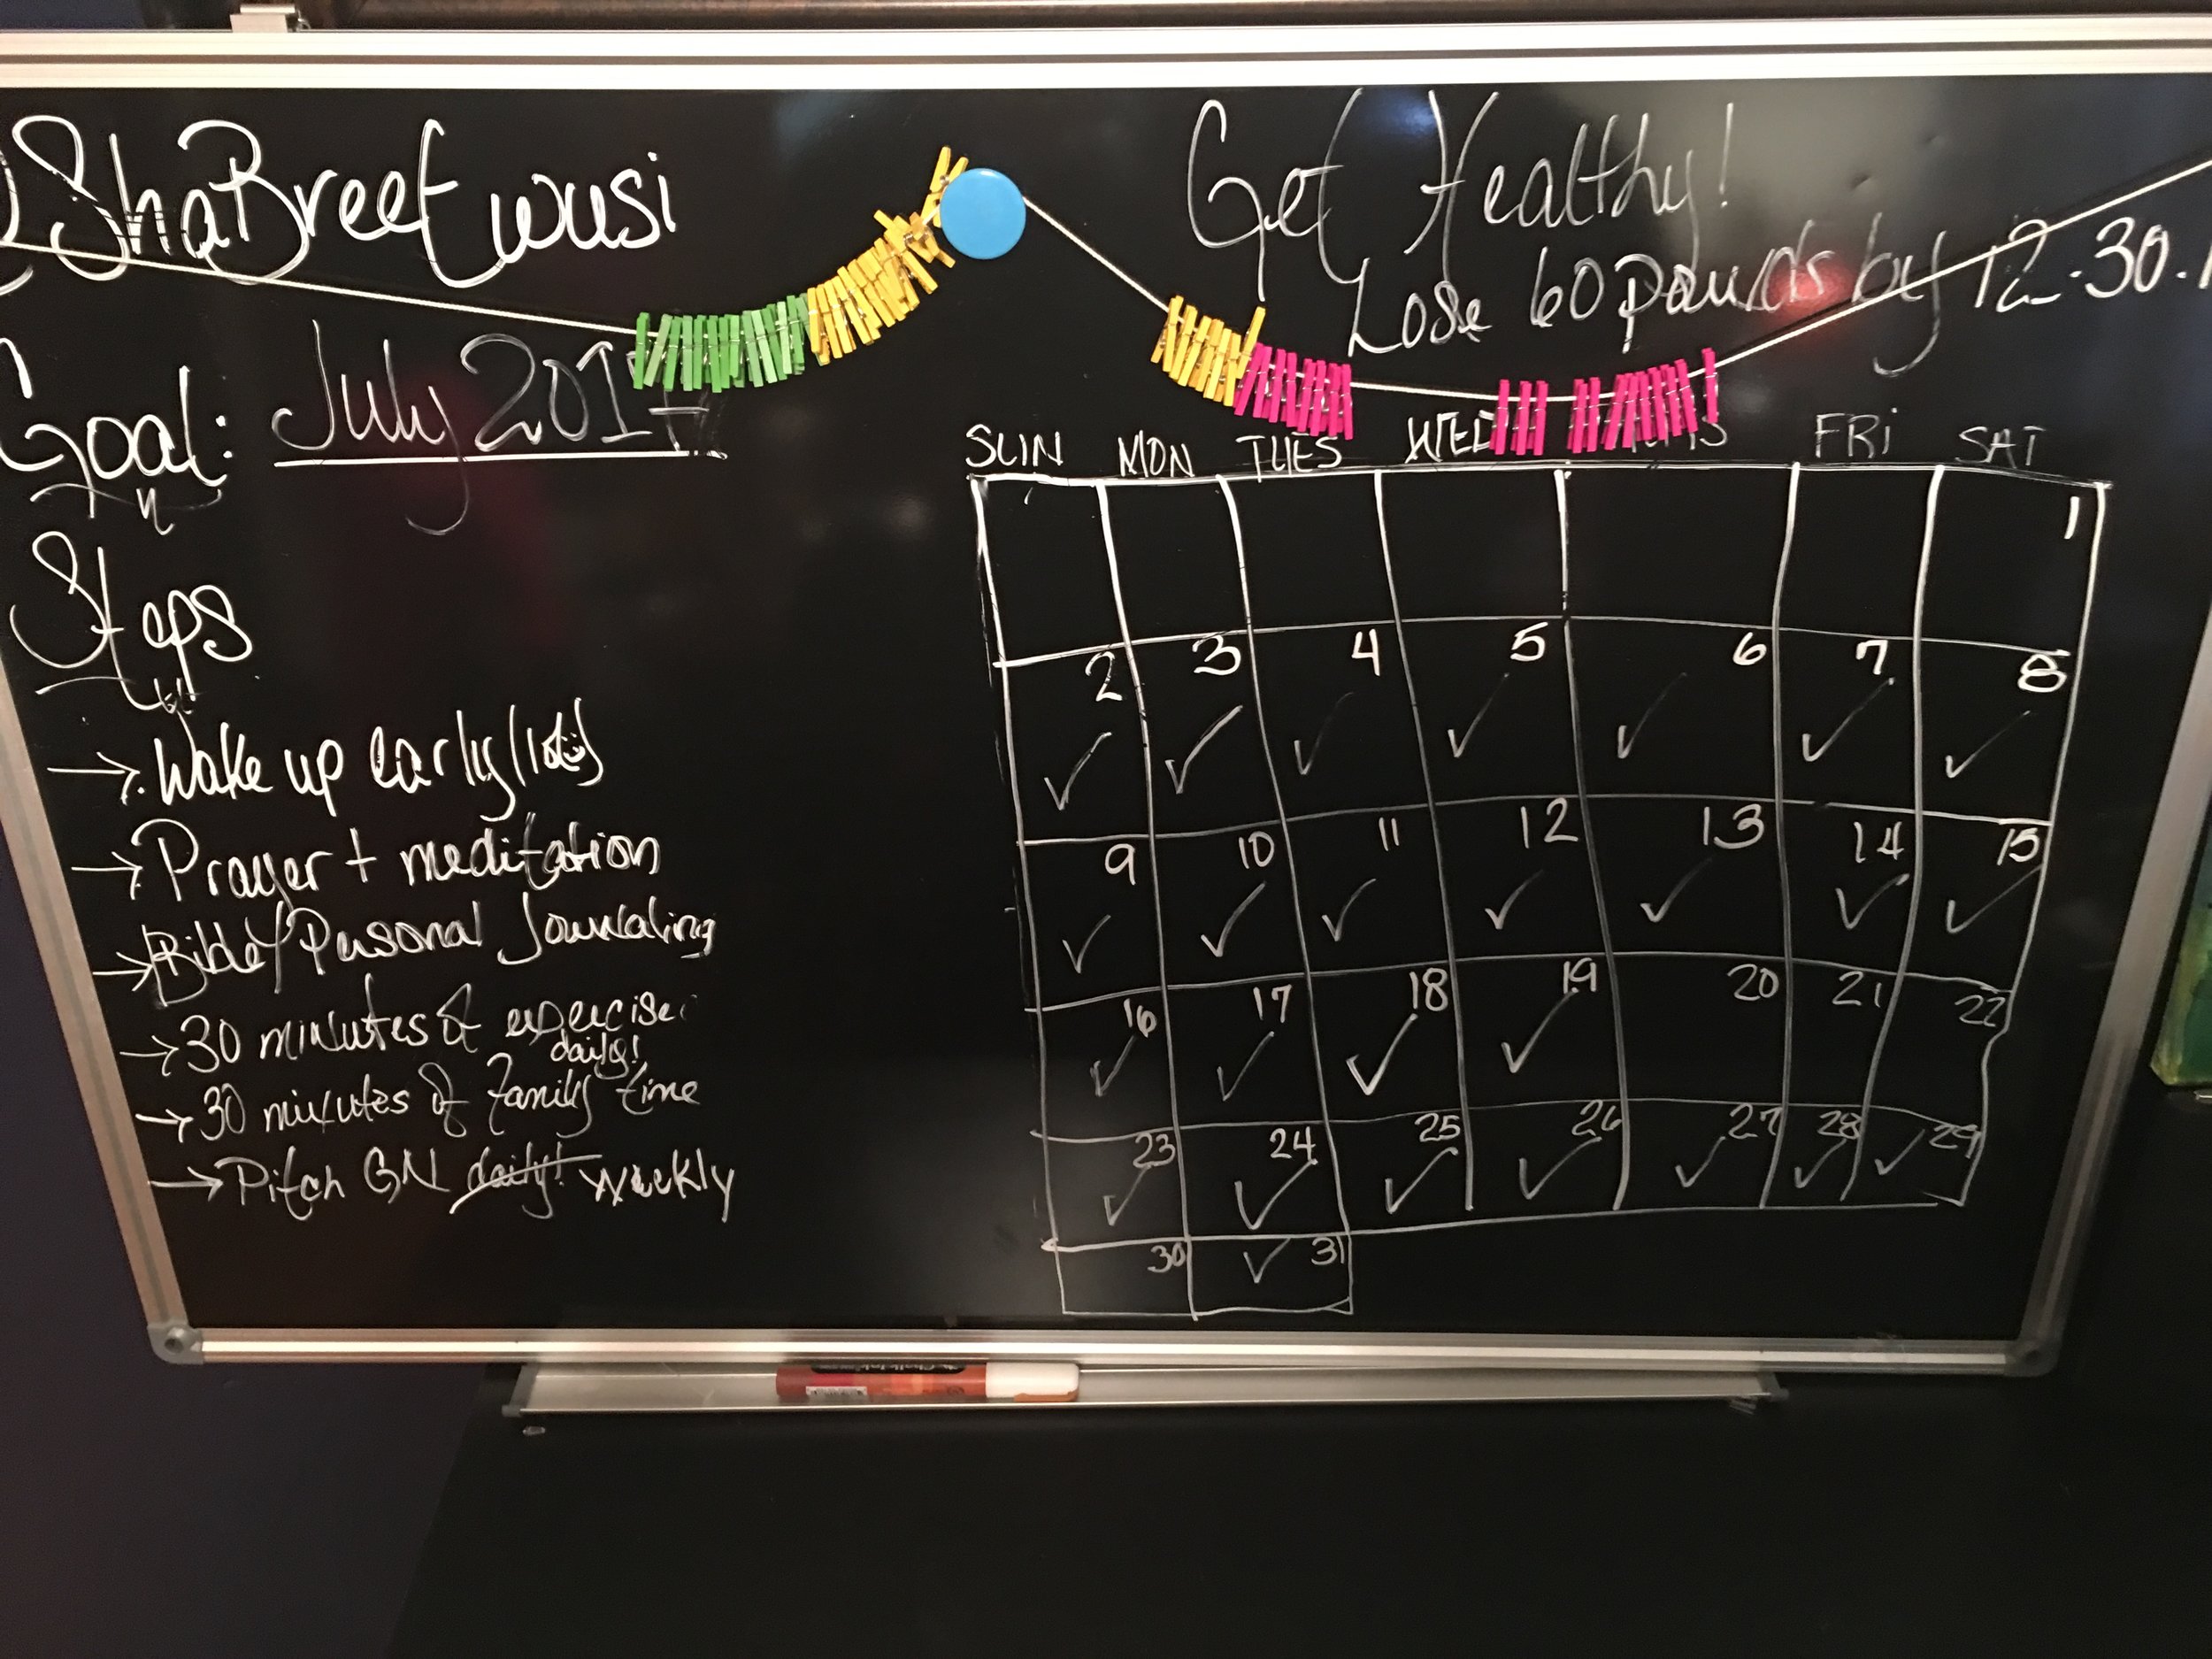 ShaBreeEwusi
Get Healthy!
Lose 60 pounds by 12.30.
Goal: July 2017
Steps
Wake up early
Prayer + meditation
Bible/Personal Journaling
30 minutes of exercise
daily!
30 minutes of family time
Pitch GN daily! weekly
SUN MON TUES WED FRI SAT
1
2 3 4 5 6 7 8
9 10 11 12 13 14 15
16 17 18 19 20 21 22
23 24 25 26 27 28 29
30 31